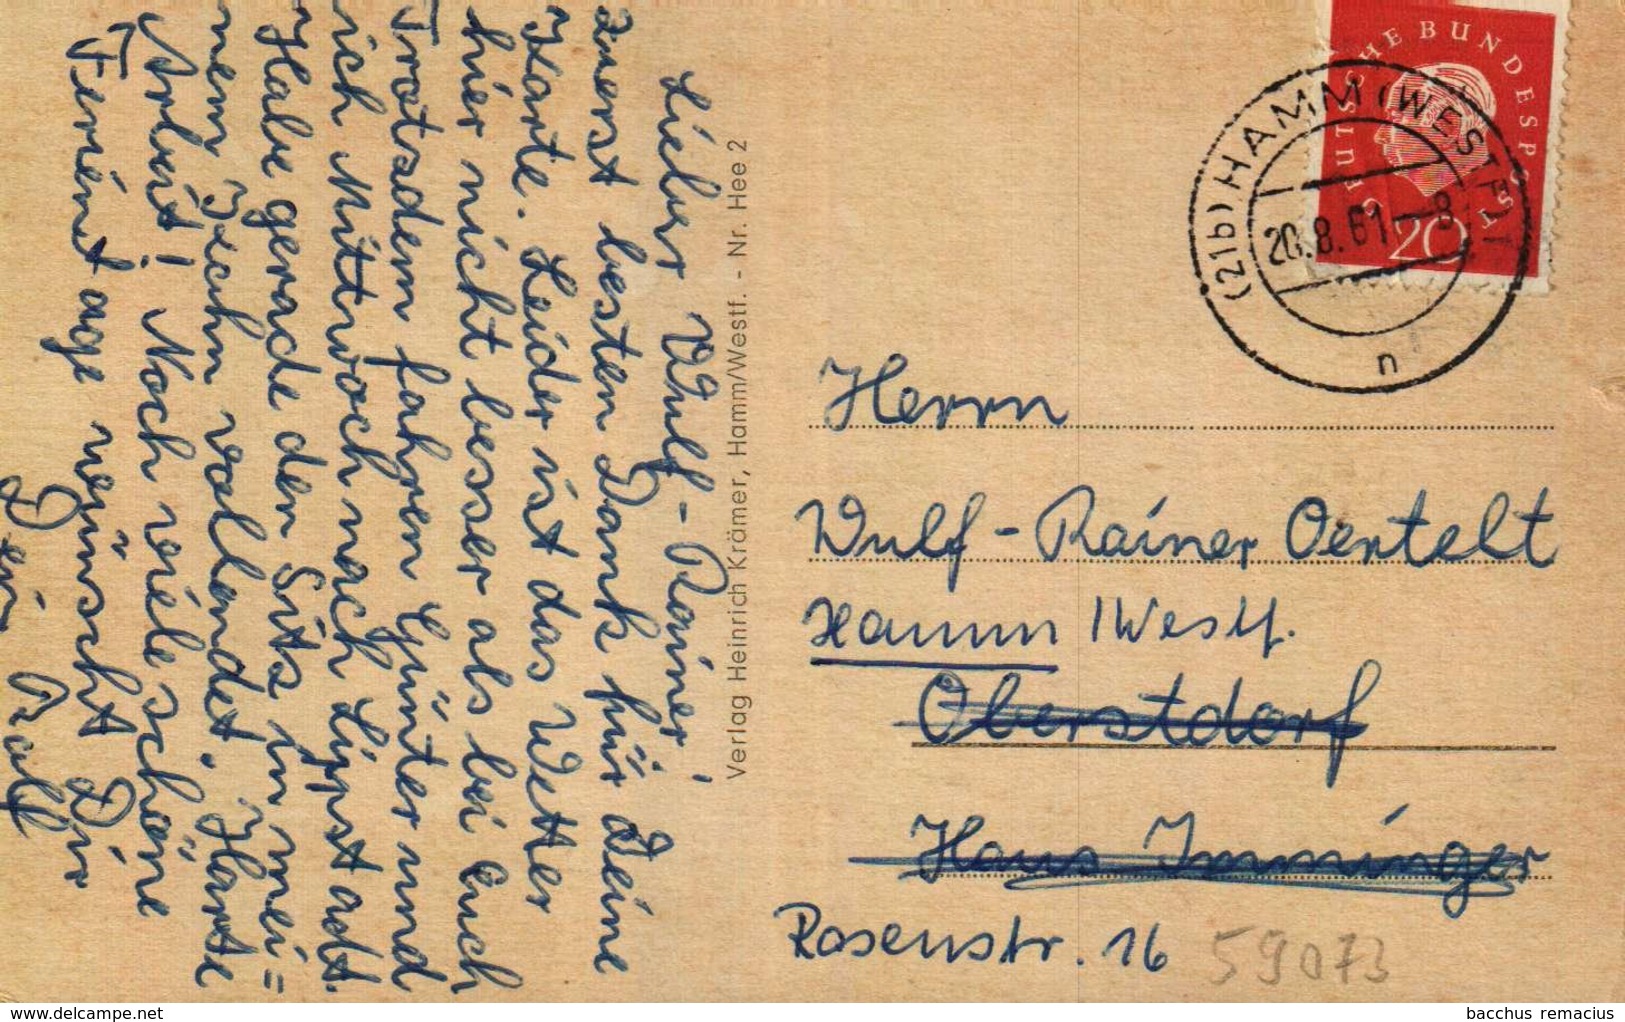 Lieber Wulf-Rainer!
Zuerst besten Dank für Deine
Karte. Leider ist das Wetter
hier nicht besser als bei Euch
Trotsdem fahren Günter und
ich Mittwoch nach Lippstadt.
Habe gerade den Sits in mei=
nem Kahn vollendet. Harte
Arbeit! Noch viele schöne
Ferientage wünscht Dir
Dein Rolf
Verlag Heinrich Krämer, Hamm/Westf. - Nr. Hee 2
DEUTSCHE BUNDESPOST
20
(21b) HAMM (WESTF) 1
20.8.61-8
n
Herrn
Wulf-Rainer Oertelt
Hamm / Westf.
Oberstdorf
Haus Imminger
Rosenstr. 16
59073
www.delcampe.net
bacchus remacius